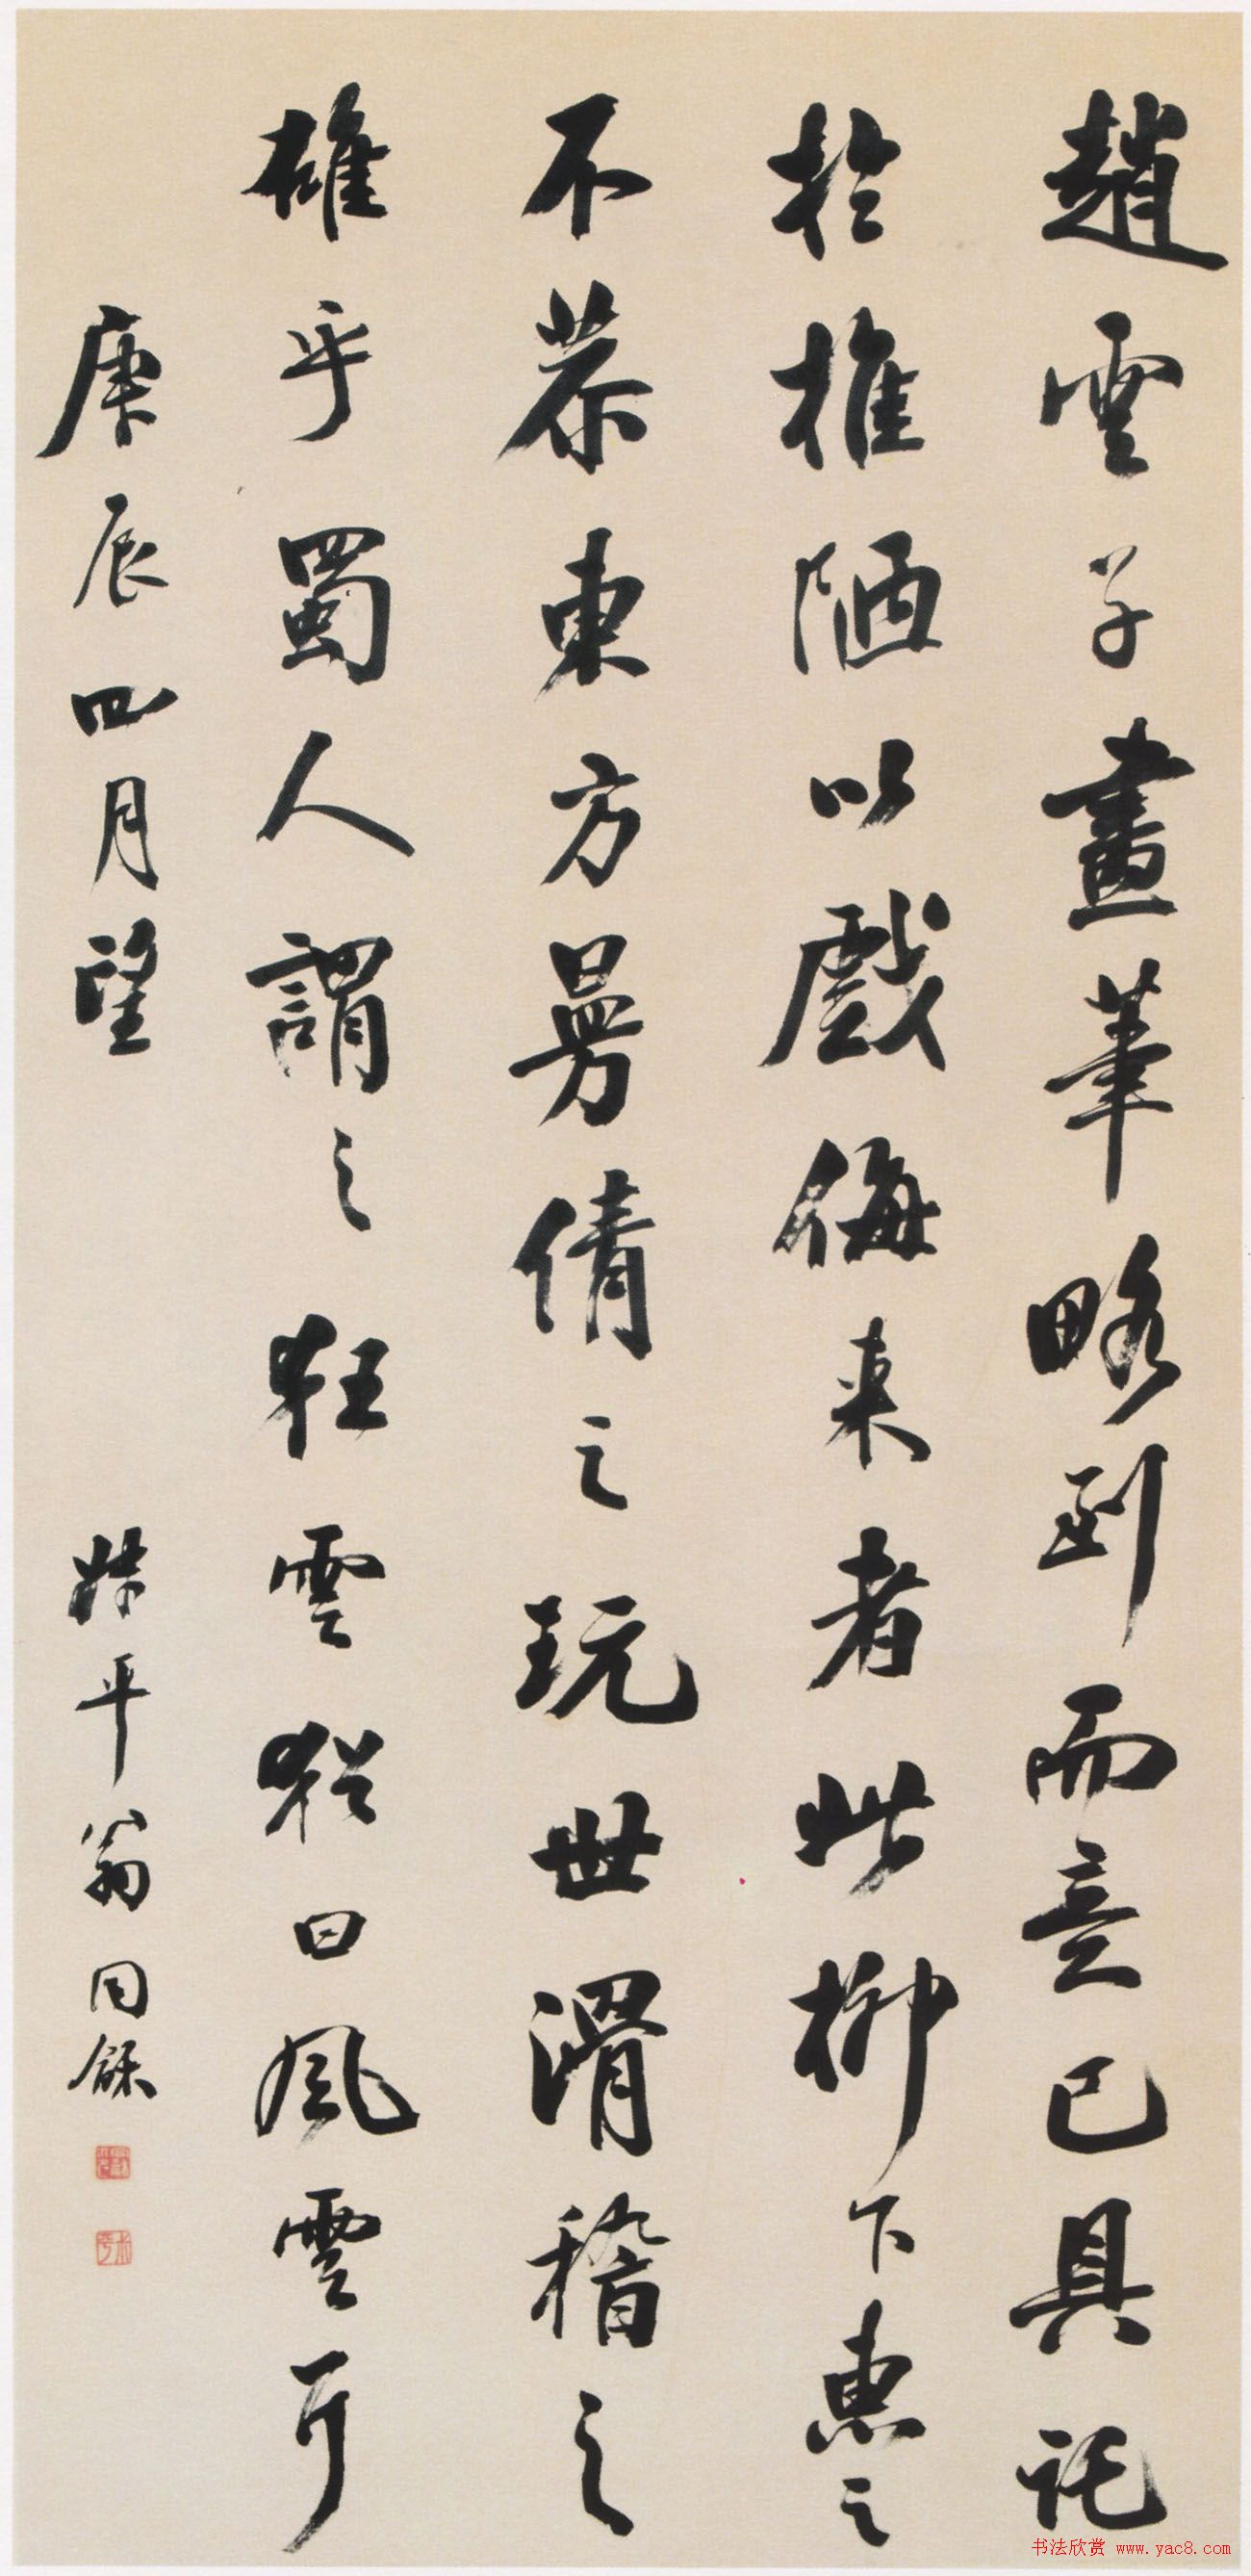 趙雲子畫筆略到而意已具託
於椎陋以戲侮來者此柳下惠之
不恭東方曼倩之玩世滑稽之
雄乎蜀人謂之狂雲猶曰風雲耳
庚辰四月望
姝平翁同龢
书法欣赏 www.yac8.com